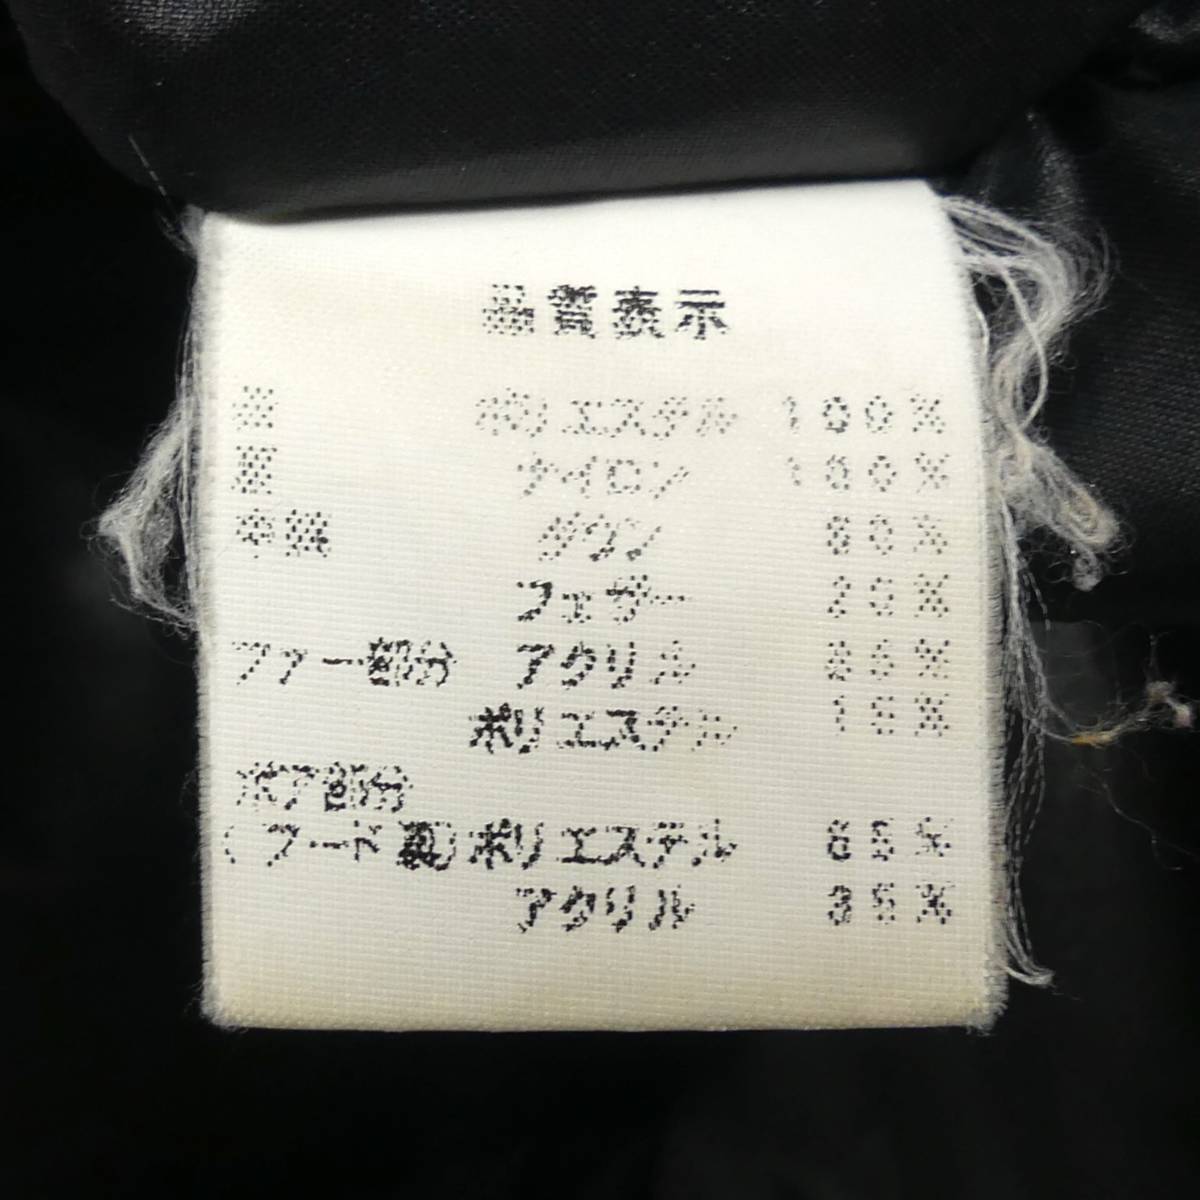 品質表示
表 ポリエステル 100%
裏 ナイロン 100%
中綿 ダウン 80%
フェザー 20%
ファー部分 アクリル 85%
ポリエステル 15%
ボア部分
(フード裏)ポリエステル 65%
アクリル 35%